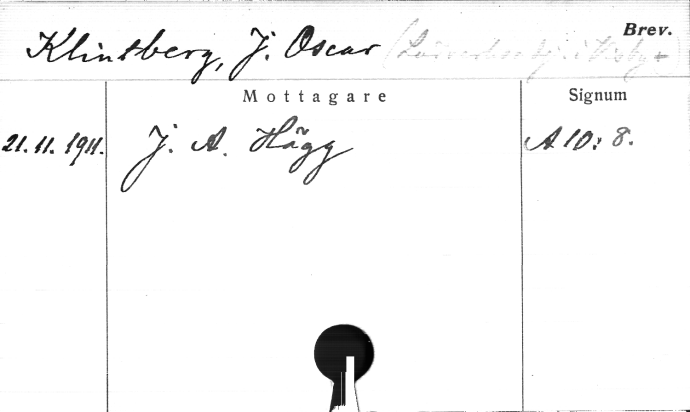 Brev.
Klintberg, J. Oscar
Mottagare Signum
21.11.1911. J. A. Hägg A 10: 8.